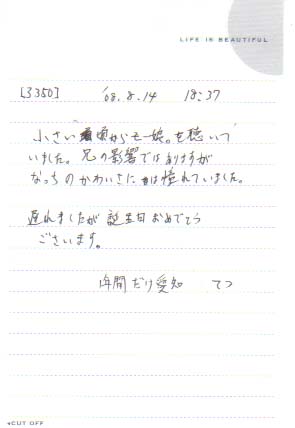 LIFE IS BEAUTIFUL
[3350] '08.8.14 18:37
小さい頃からモー娘。を聴いて
いました。兄の影響ではありますが
なっちのかわいさには憧れていました。
遅れましたが誕生日おめでとう
ございます。
1年間だけ愛知 てつ
◂CUT OFF